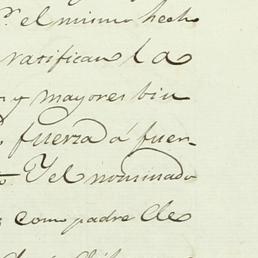 el mismo hecho
ratifican la
y mayores bin
fuerza á fuer-
Y el nominado
como padre de